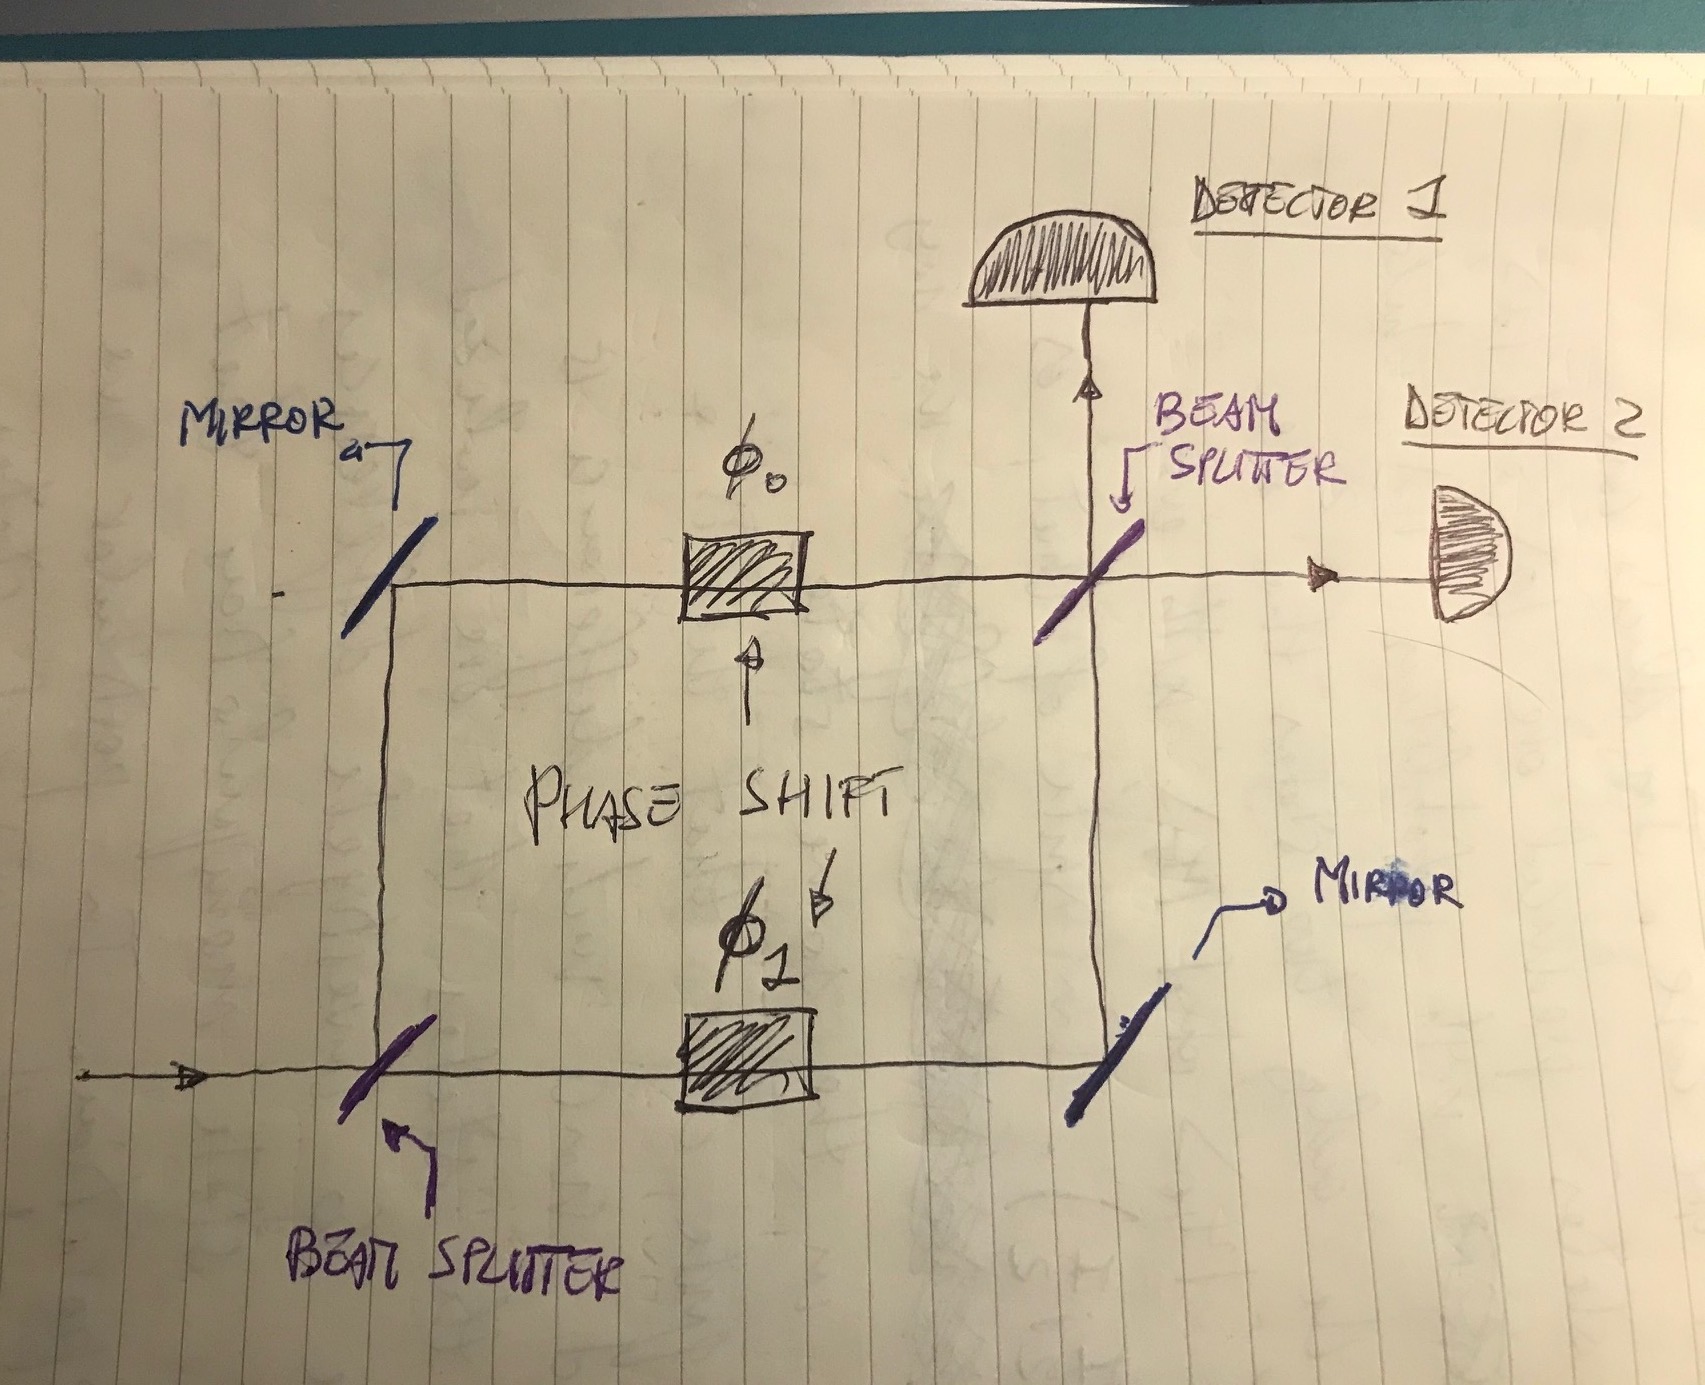 DETECTOR 1
MIRROR
ϕ₀
BEAM
SPLITTER
DETECTOR 2
PHASE SHIFT
ϕ₁
MIRROR
BEAM SPLITTER